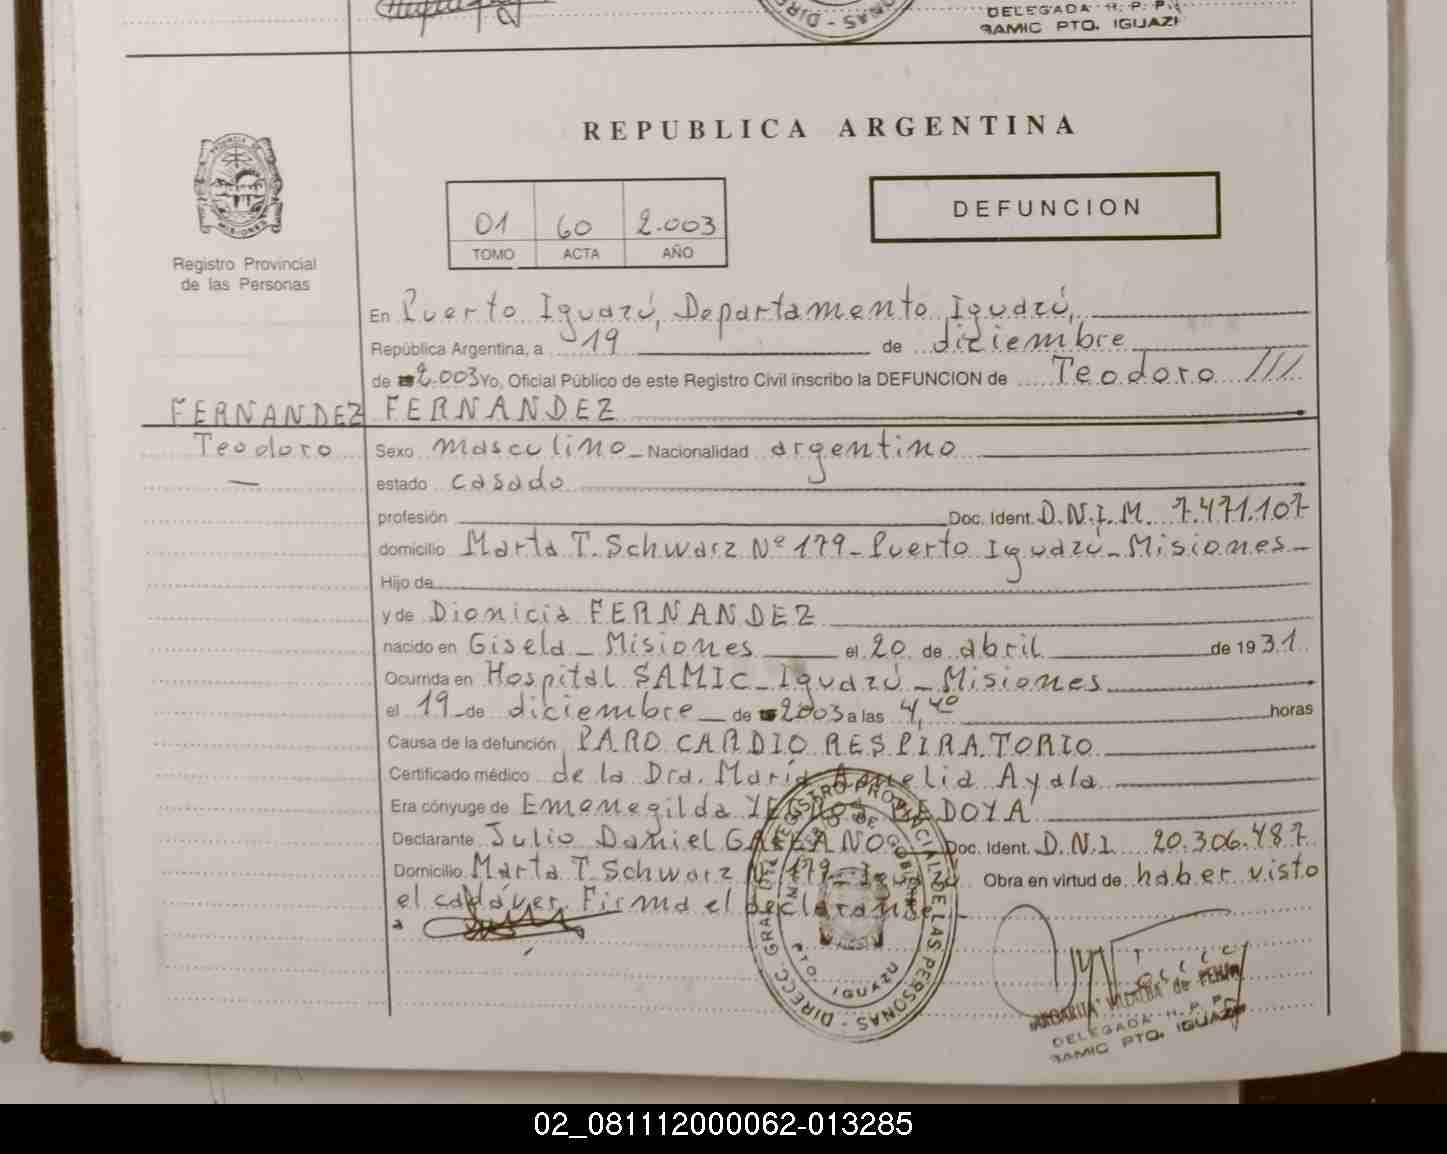 DELEGADA H. P. P.
SAMIC PTO. IGUAZU
REPUBLICA ARGENTINA
01 60 2.003
TOMO ACTA AÑO
DEFUNCION
Registro Provincial
de las Personas
En Puerto Iguazú, Departamento Iguazú,
República Argentina, a 19 de diciembre
de 2.003 Yo, Oficial Público de este Registro Civil inscribo la DEFUNCION de Teodoro ///
FERNANDEZ FERNANDEZ
Teodoro Sexo masculino Nacionalidad argentino
estado casado
profesión Doc. Ident. D.N.I. M. 7.471.107
domicilio Marta T. Schwarz Nº 179 - Puerto Iguazú - Misiones -
Hijo de
y de Dionicia FERNANDEZ
nacido en Gisela - Misiones el 20 de abril de 1931.
Ocurrida en Hospital SAMIC - Iguazú - Misiones
el 19 de diciembre de 2003 a las 4,40 horas
Causa de la defunción PARO CARDIO RESPIRATORIO
Certificado médico de la Dra. María Amelia Ayala
Era cónyuge de Emenegilda BEDOYA
Declarante Julio Daniel GALEANO Doc. Ident. D.N.I. 20.306.487
Domicilio Marta T. Schwarz Nº 179 - Iguazú Obra en virtud de haber visto
el cadáver. Firma el declarante.
DIRECC. GRAL. DEL REGISTRO PROVINCIAL DE LAS PERSONAS
PTO. IGUAZU
DELEGADA H. P. P.
SAMIC PTO. IGUAZU
02_081112000062-013285